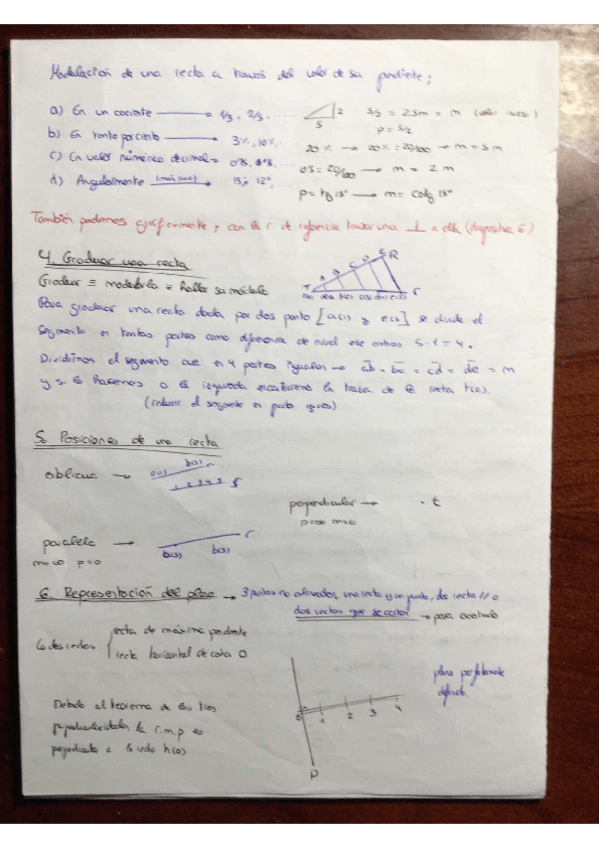 Modulación de una recta a través del valor de su pendiente;
a) En un cociente → 1/3, 2/3, ....
2
5
5/2 = 2,5 m = m
p = 2/5
b) En tanto por ciento → 3%, 10%, ...
20% → 20% = 20/100 → m = 5 m
c) En valor numérico decimal =
m = 2 m
d) Angularmente → 15°, 12°,
p = tg 15° → m = cotg 15°
También podemos gráficamente, con la r de referencia trazar una ⊥ a ella (diapositiva 6)
4. Graduar una recta
Graduar ≡ modularla ≡ hallar su módulo
A B C D E R
r
Para graduar una recta dada por dos puntos [a(1) y e(5)] se divide el
segmento en tantas partes como diferencia de nivel entre ambos 5-1 = 4.
Dividimos el segmento ae en 4 partes iguales → ab = bc = cd = de = m
y si lo hacemos a la izquierda encontramos la traza de la recta h(0).
(reducir el segmento en partes iguales)
5. Posiciones de una recta
oblicua →
a(1) b(5) r
1 2 3 4 5
perpendicular → · t
p=∞ m=0
paralela →
a(5) b(5) r
m=∞ p=0
6. Representación del plano → 3 puntos no alineados, una recta y un punto, dos rectas // o
dos rectas que se cortan → para acotado
dos rectas
recta de máxima pendiente
recta horizontal de cota 0
plano perfectamente
definido
0 1 2 3 4
Debido al teorema de las tres
perpendiculares la r.m.p es
perpendicular a la recta h(0)
P